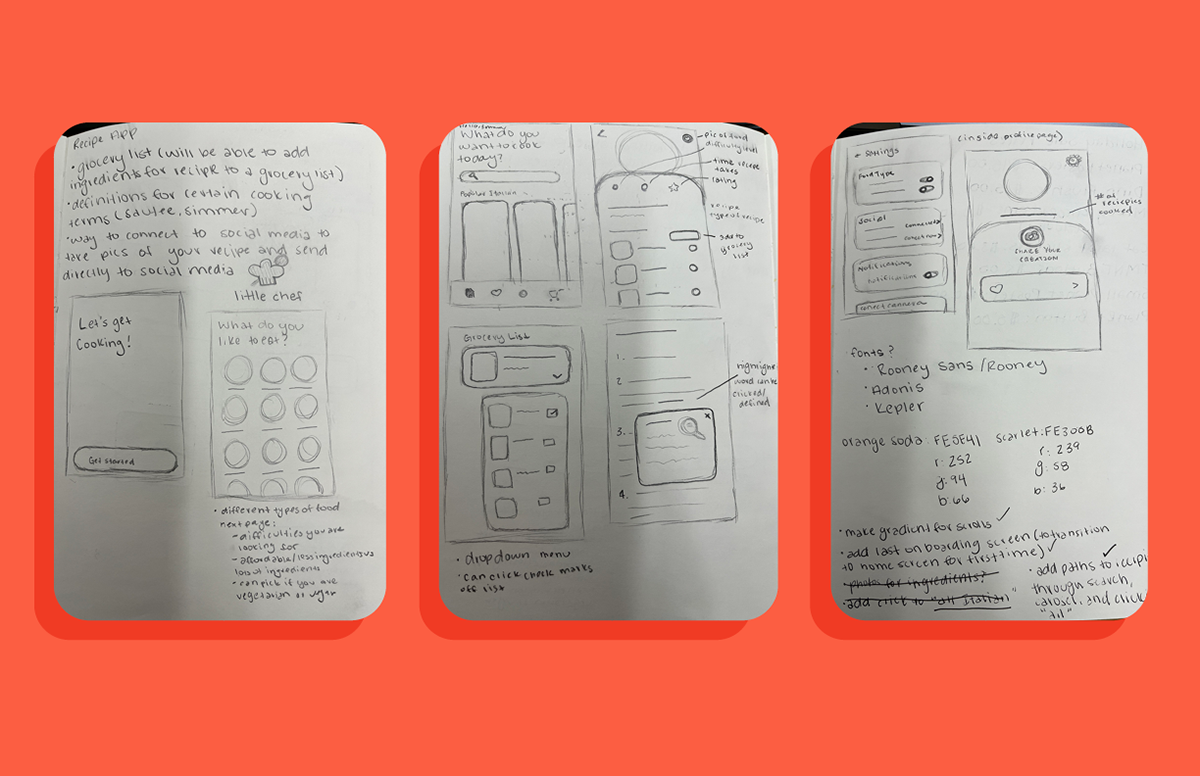 Recipe App
• grocery list (will be able to add
ingredients for recipe to a grocery list)
• definitions for certain cooking
terms (sautee, simmer)
• way to connect to social media to
take pics of your recipe and send
directly to social media
little chef
Let's get
Cooking!
Get started
What do you
like to eat?
• different types of food
next page:
- difficulties you are
looking for
- affordable/less ingredients vs
loss of ingredients
- can pick if you are
vegetarian or vegan
What do you
want to cook
today?
Popular Italian
pic of food
difficulty level
time recipe
takes
rating
recipe
type of recipe
add to
grocery
list
Grocery List
• dropdown menu
• can click check marks
off list
1.
2
3.
4.
word can be
clicked/
defined
(inside profile page)
← Settings
Food Type
Social
connected>
connect now>
Notifications
Notifications
# of
recipies
cooked
SHARE YOUR
CREATION
>
fonts?
• Rooney Sans/Rooney
• Adonis
• Kepler
orange soda: FE5E41
r: 252
g: 94
b: 66
scarlet: FE300B
r: 239
g: 58
b: 36
• make gradient for scrolls ✓
• add last onboarding screen (to transition
to home screen for first time) ✓
• photos for ingredients?
• add click to "all Italian"
• add paths to recipi
through search,
carosel, and click
"all"